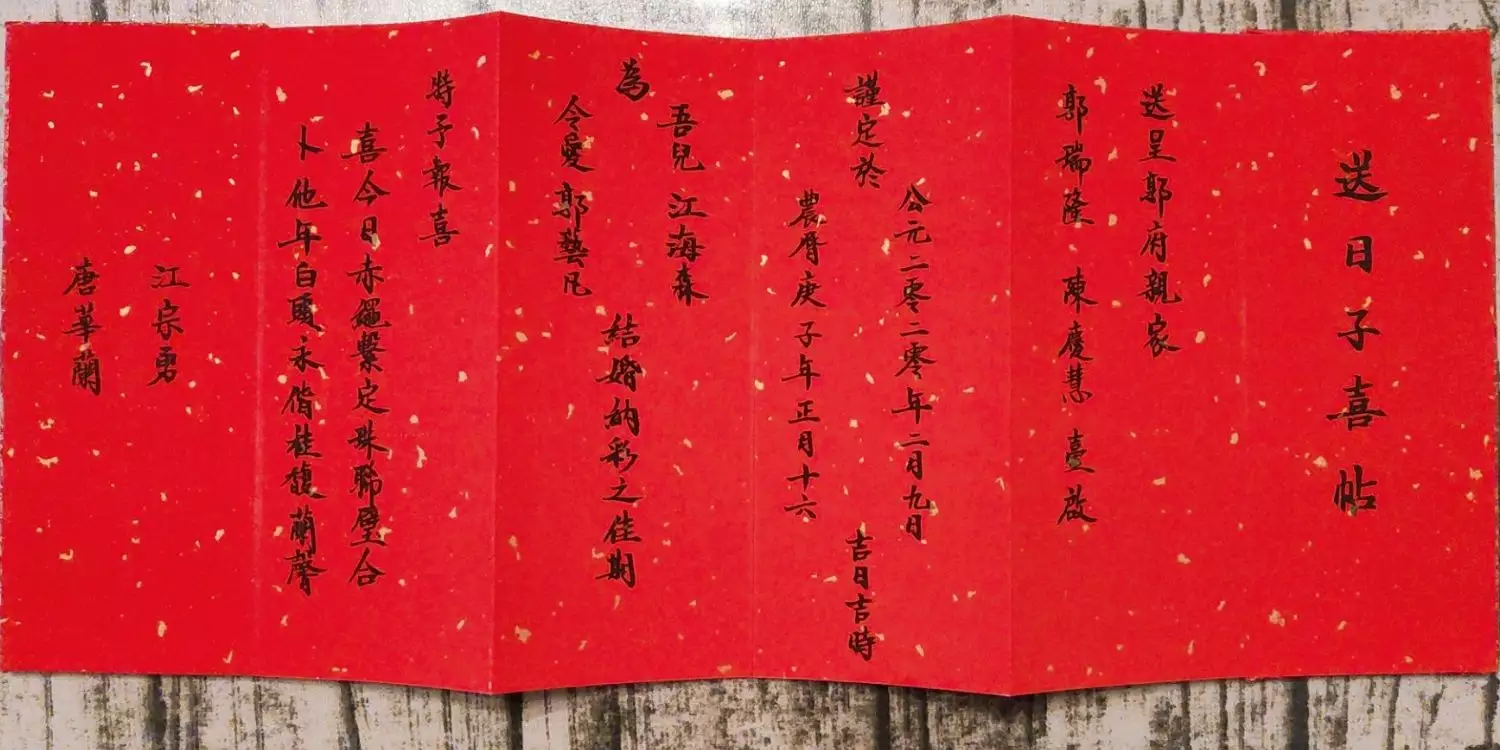 送日子喜帖
送呈郭府親家
郭瑞隆 陳慶慧 臺啟
謹定於
公元二零二零年二月九日
農曆庚子年正月十六
吉日吉時
為
吾兒 江海森
令愛 郭藝凡
結婚納彩之佳期
特予報喜
喜今日赤繩繫定珠聯璧合
卜他年白頭永偕桂馥蘭馨
江宗勇
唐華蘭